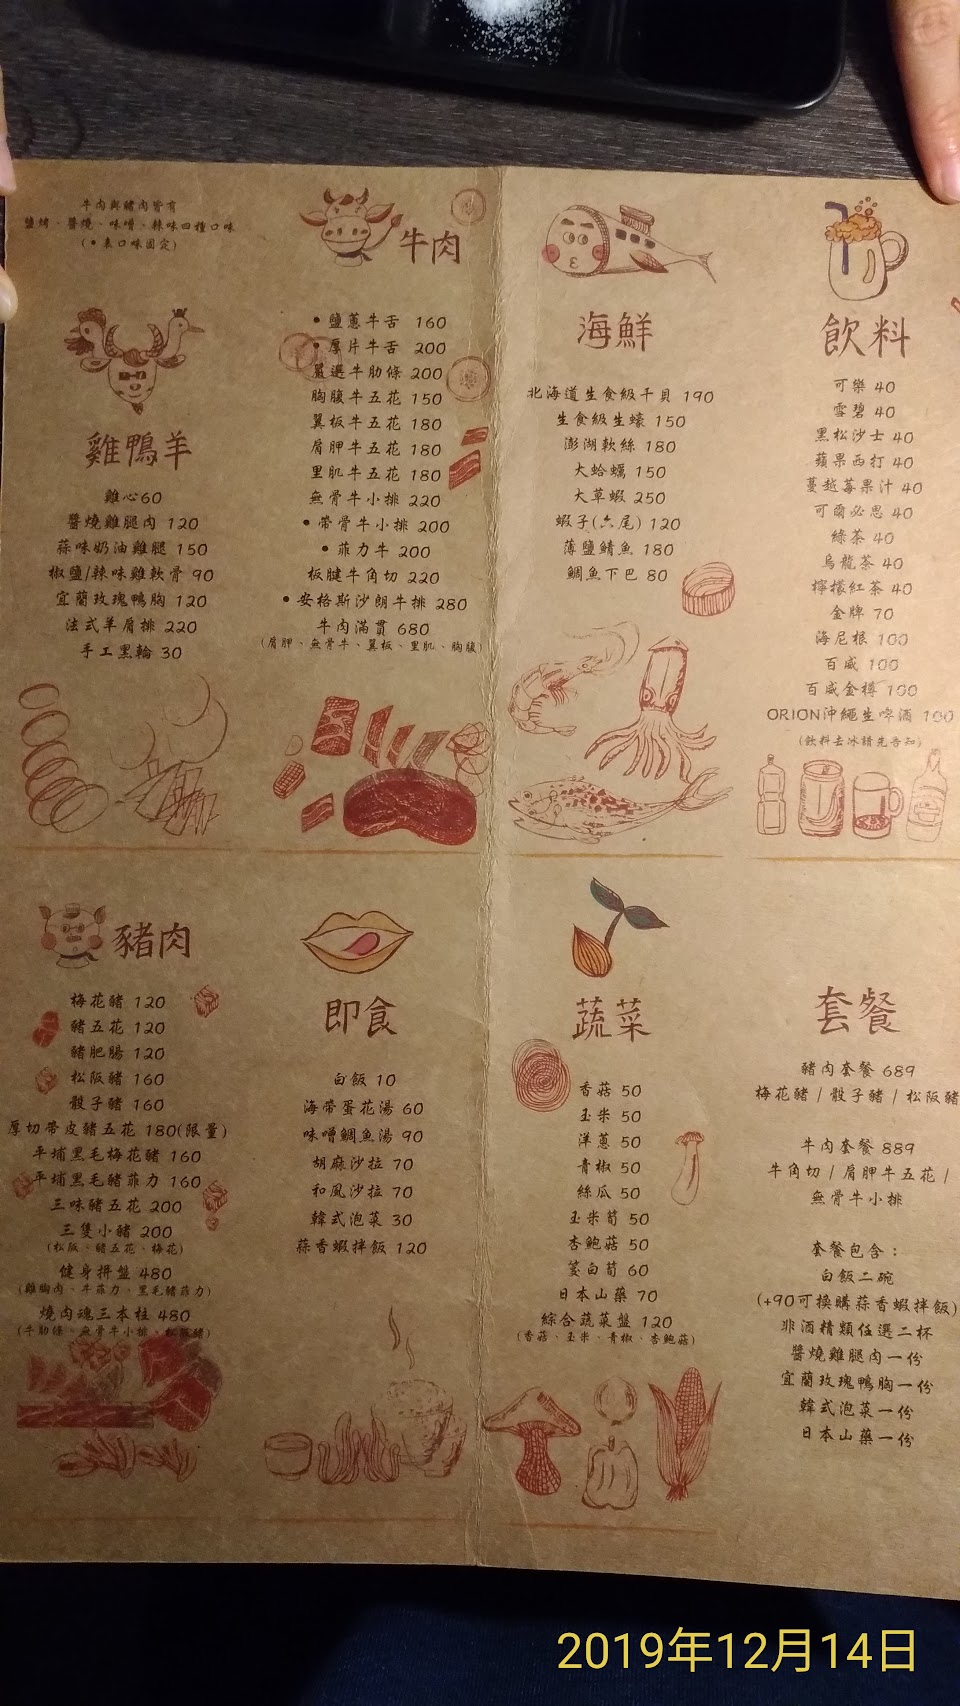 牛肉與豬肉皆有
鹽烤、醬燒、味噌、辣味四種口味
(•表口味固定)
雞鴨羊
雞心60
醬燒雞腿肉 120
蒜味奶油雞腿 150
椒鹽/辣味雞軟骨 90
宜蘭玫瑰鴨胸 120
法式羊肩排 220
手工黑輪 30
牛肉
•鹽蔥牛舌 160
•厚片牛舌 200
嚴選牛肋條 200
胸腹牛五花 150
翼板牛五花 180
肩胛牛五花 180
里肌牛五花 180
無骨牛小排 220
•帶骨牛小排 200
•菲力牛 200
板腱牛角切 220
•安格斯沙朗牛排 280
牛肉滿貫 680
(肩胛、無骨牛、翼板、里肌、胸腹)
海鮮
北海道生食級干貝 190
生食級生蠔 150
澎湖軟絲 180
大蛤蠣 150
大草蝦 250
蝦子(六尾) 120
薄鹽鯖魚 180
鯛魚下巴 80
飲料
可樂 40
雪碧 40
黑松沙士 40
蘋果西打 40
蔓越莓果汁 40
可爾必思 40
綠茶 40
烏龍茶 40
檸檬紅茶 40
金牌 70
海尼根 100
百威 100
百威金樽 100
ORION沖繩生啤酒 100
(飲料去冰請先告知)
豬肉
梅花豬 120
豬五花 120
豬肥腸 120
松阪豬 160
骰子豬 160
厚切帶皮豬五花 180(限量)
平埔黑毛梅花豬 160
平埔黑毛豬菲力 160
三味豬五花 200
三隻小豬 200
(松阪、豬五花、梅花)
健身拼盤 480
(雞胸肉、牛菲力、黑毛豬菲力)
燒肉魂三本柱 480
(牛肋條、無骨牛小排、松阪豬)
即食
白飯 10
海帶蛋花湯 60
味噌鯛魚湯 90
胡麻沙拉 70
和風沙拉 70
韓式泡菜 30
蒜香蝦拌飯 120
蔬菜
香菇 50
玉米 50
洋蔥 50
青椒 50
絲瓜 50
玉米筍 50
杏鮑菇 50
茭白筍 60
日本山藥 70
綜合蔬菜盤 120
(香菇、玉米、青椒、杏鮑菇)
套餐
豬肉套餐 689
梅花豬 / 骰子豬 / 松阪豬
牛肉套餐 889
牛角切 / 肩胛牛五花 /
無骨牛小排
套餐包含：
白飯二碗
(+90可換購蒜香蝦拌飯)
非酒精類任選二杯
醬燒雞腿肉一份
宜蘭玫瑰鴨胸一份
韓式泡菜一份
日本山藥一份
2019年12月14日